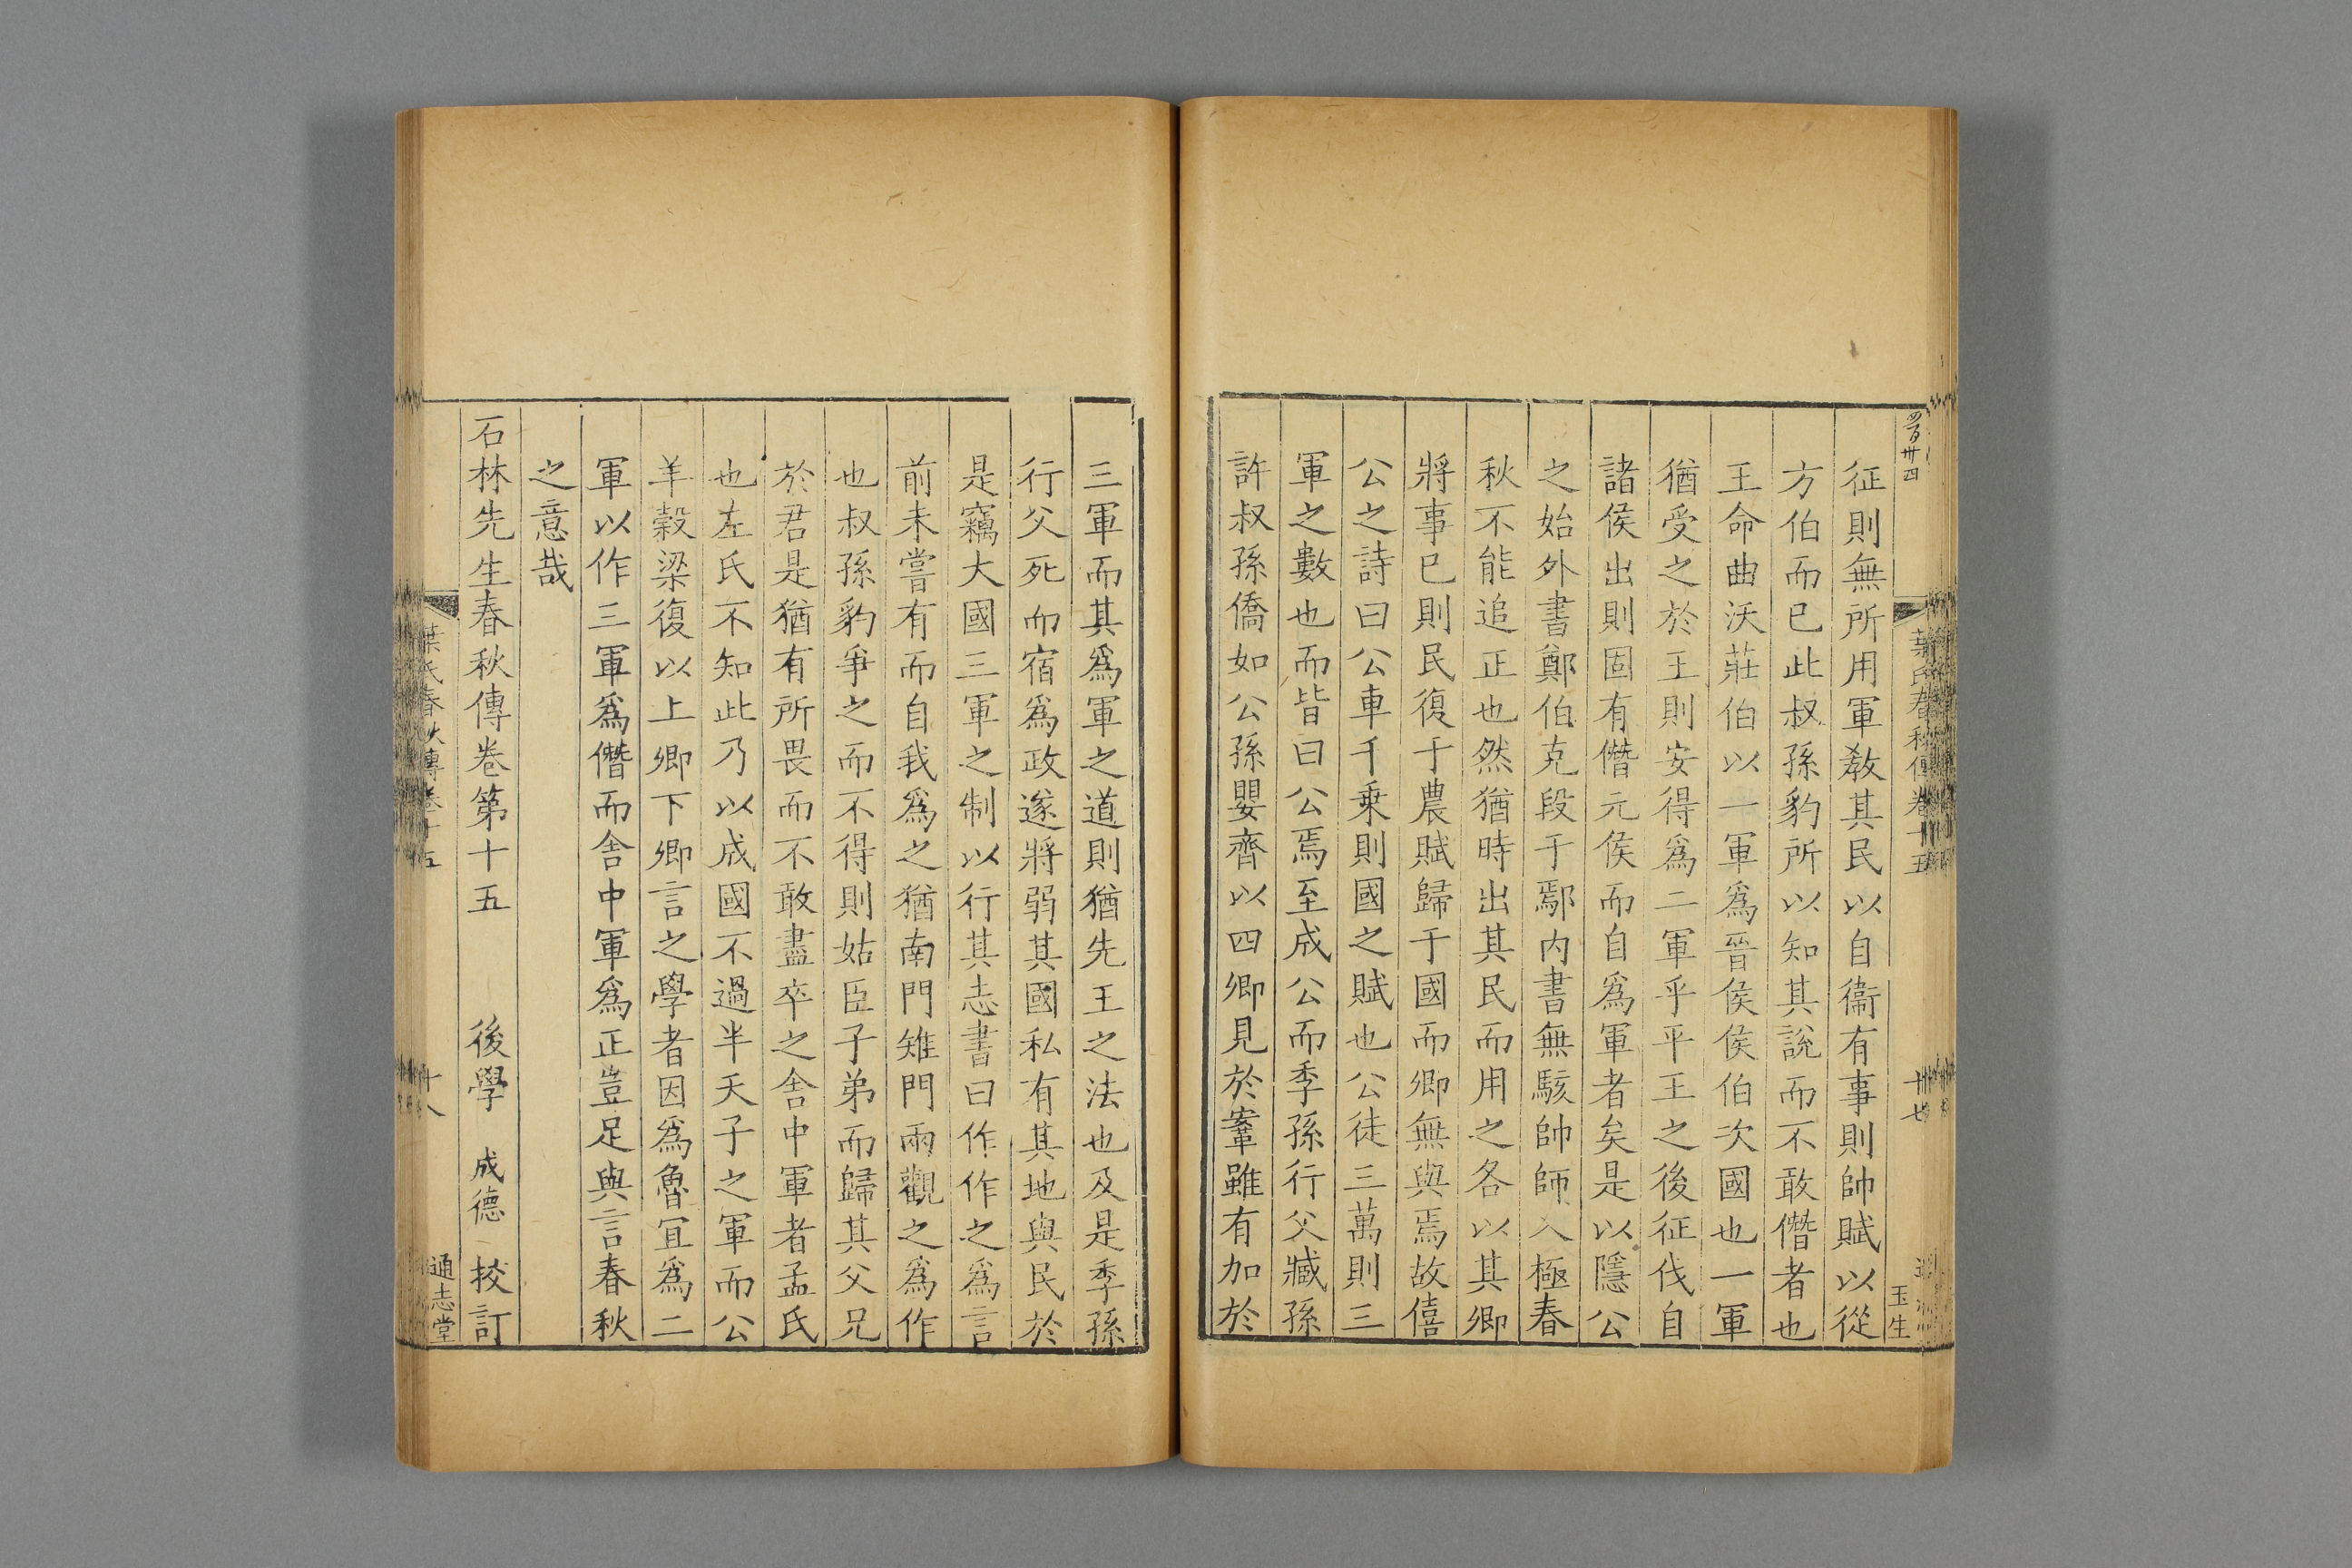 征則無所用軍教其民以自衞有事則帥賦以從
方伯而已此叔孫豹所以知其說而不敢僭者也
王命曲沃莊伯以一軍爲晉侯侯伯次國也一軍
猶受之於王則安得爲二軍乎平王之後征伐自
諸侯出則固有僭元侯而自爲軍者矣是以隱公
之始外書鄭伯克段于鄢內書無駭帥師入極春
秋不能追正也然猶時出其民而用之各以其卿
將事已則民復于農賦歸于國而卿無與焉故僖
公之詩曰公車千乗則國之賦也公徒三萬則三
軍之數也而皆曰公焉至成公而季孫行父臧孫
許叔孫僑如公孫嬰齊以四卿見於鞌雖有加於
三軍而其爲軍之道則猶先王之法也及是季孫
行父死而宿爲政遂將弱其國私有其地與民於
是竊大國三軍之制以行其志書曰作作之爲言
前未嘗有而自我爲之猶南門雉門兩觀之爲作
也叔孫豹爭之而不得則姑臣子弟而歸其父兄
於君是猶有所畏而不敢盡卒之舍中軍者孟氏
也左氏不知此乃以成國不過半天子之軍而公
羊榖梁復以上卿下卿言之學者因爲魯宜爲二
軍以作三軍爲僭而舍中軍爲正豈足與言春秋
之意哉
石林先生春秋傳卷第十五 後學 成德 挍訂
葉氏春秋傳卷十五
十七
玉生
葉氏春秋傳卷十五
十八
通志堂